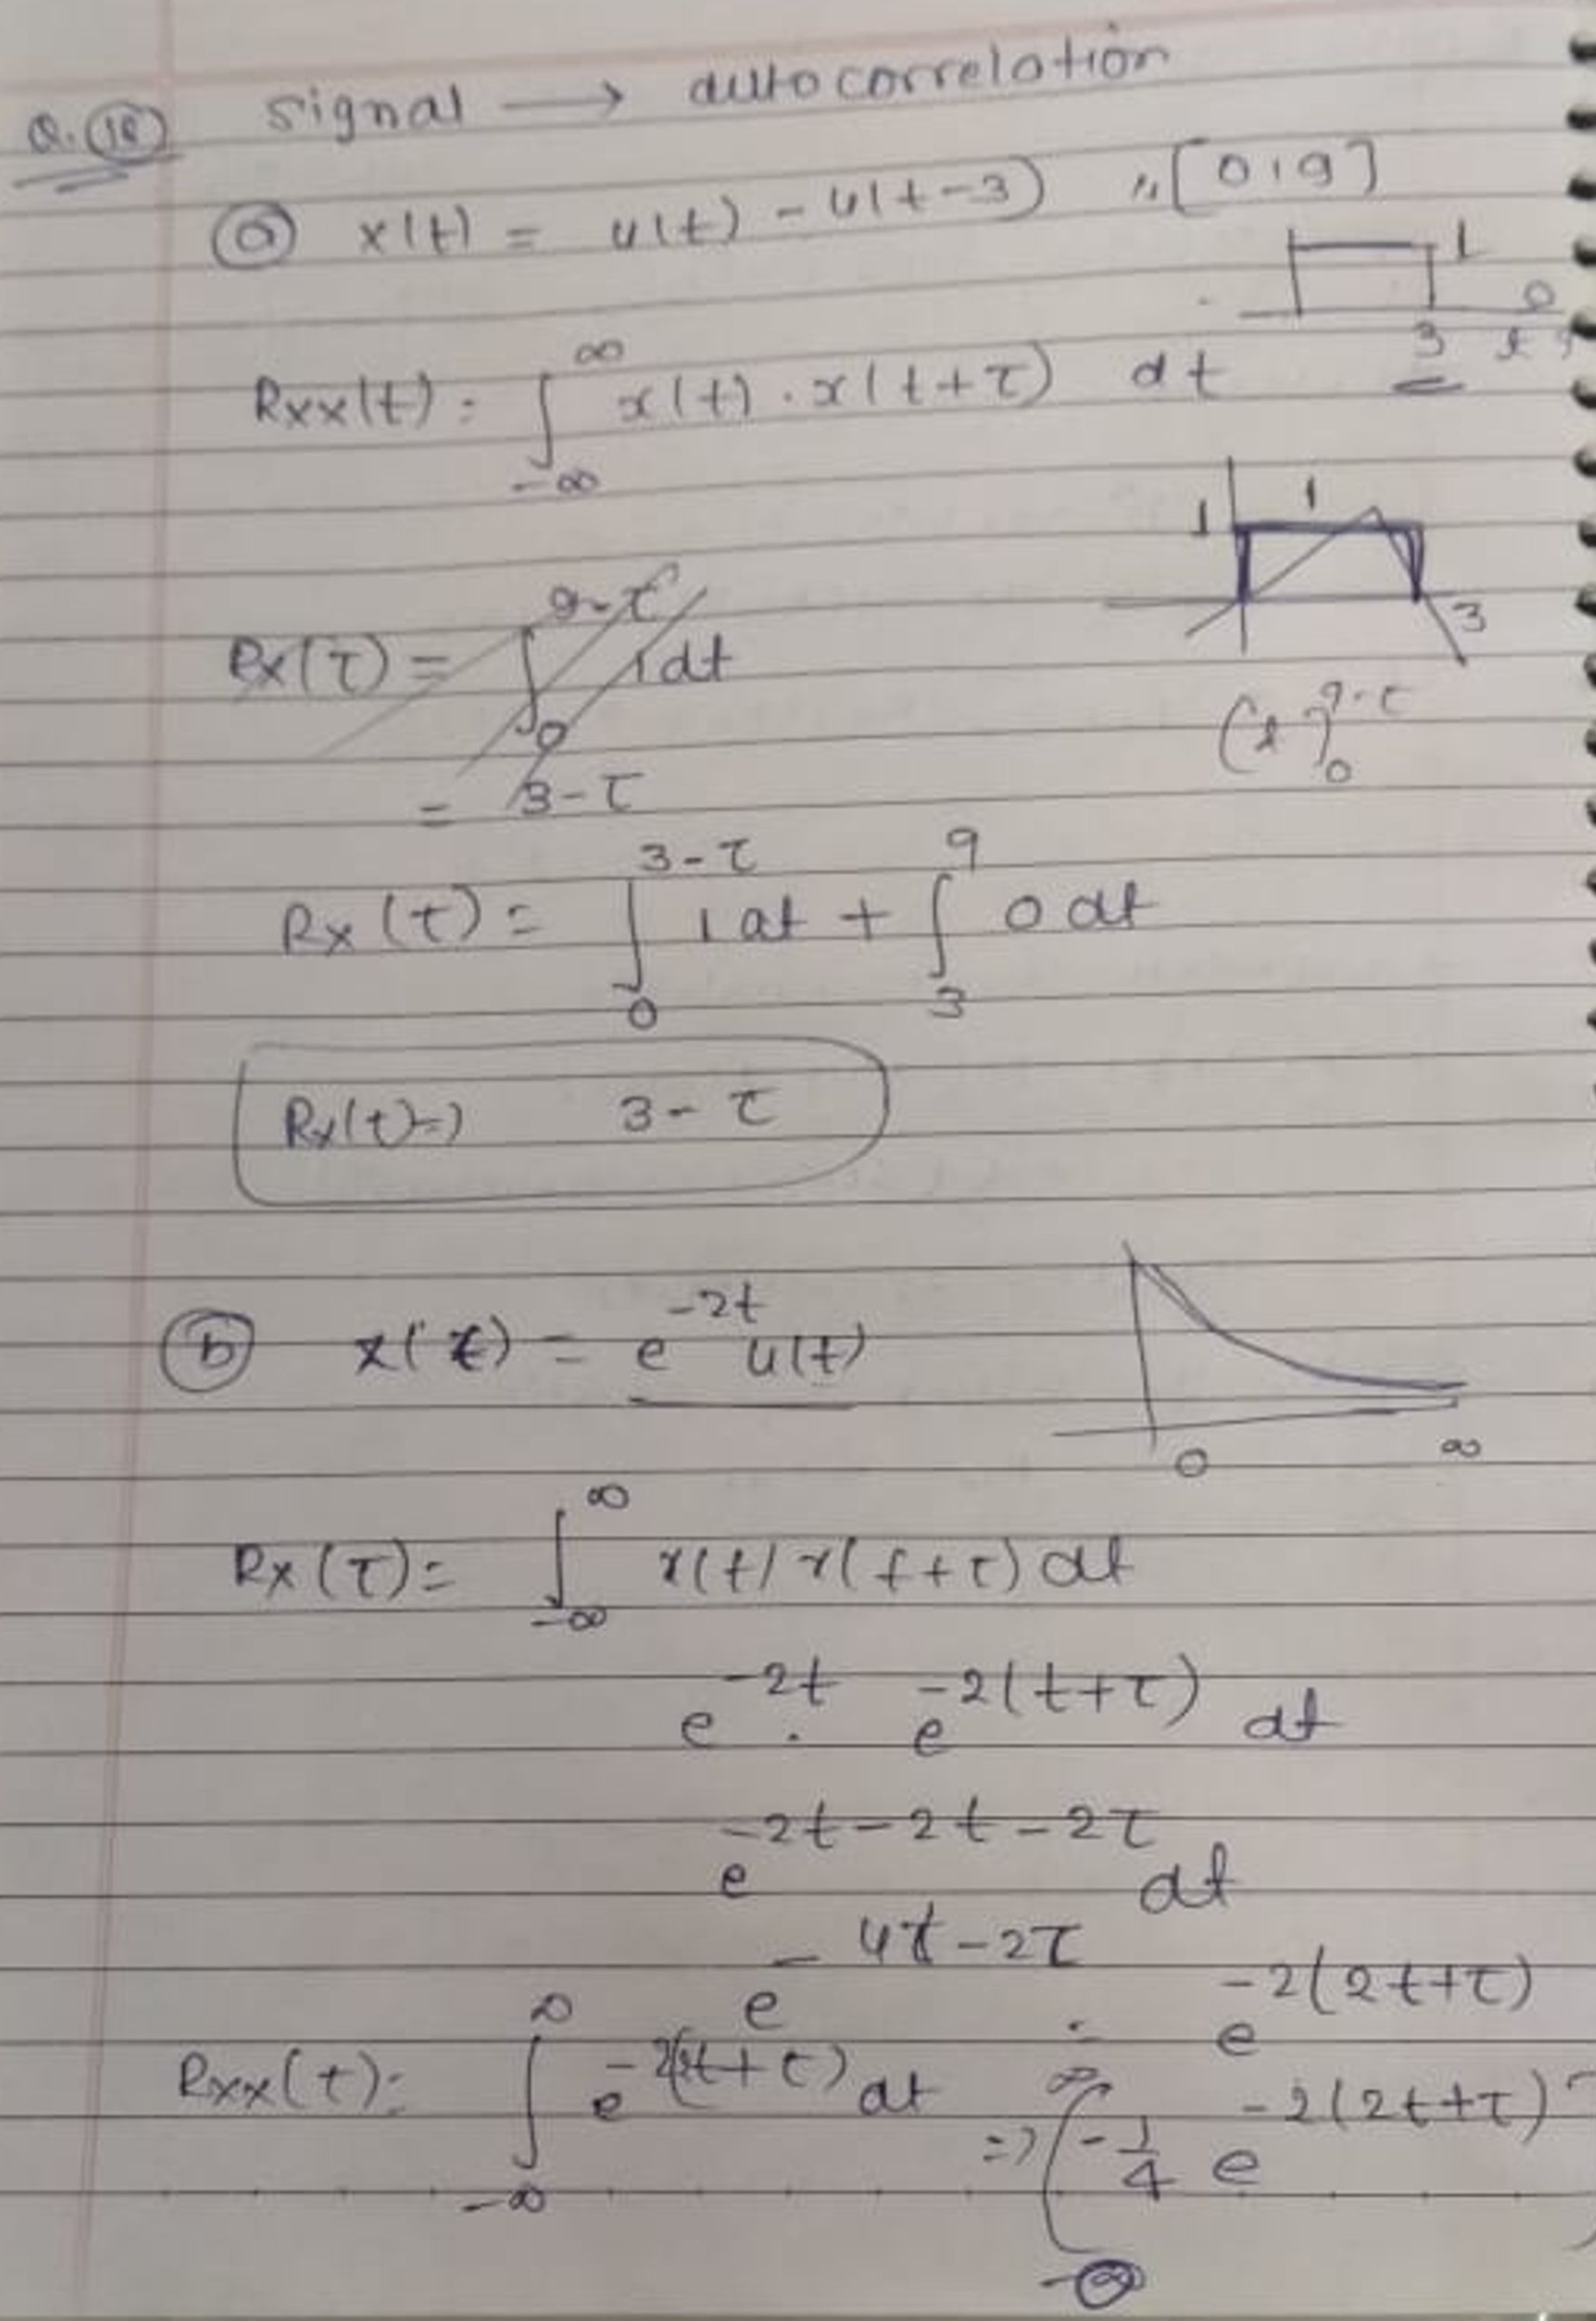 Q. 18 signal → autocorrelation
a x(t) = u(t) - u(t-3) ,, [0,9]
1
0
3
Rxx(t) = ∫_{-∞}^{∞} x(t) . x(t+τ) dt
1 1
3
Rx(τ) = ∫_0^{9-τ} 1dt
(t)_0^{9-τ}
= 3-τ
Rx(τ) = ∫_0^{3-τ} 1 dt + ∫_3^9 0 dt
Rx(t) => 3-τ
b x(t) = e^{-2t} u(t)
0 ∞
Rx(τ) = ∫_{-∞}^{∞} x(t) x(t+τ) dt
e^{-2t} . e^{-2(t+τ)} dt
e^{-2t-2t-2τ} dt
e^{-4t-2τ} = e^{-2(2t+τ)}
Rxx(t) = ∫_{-∞}^{∞} e^{-2(2t+τ)} dt => [-1/4 e^{-2(2t+τ)}]_{-∞}^{∞}